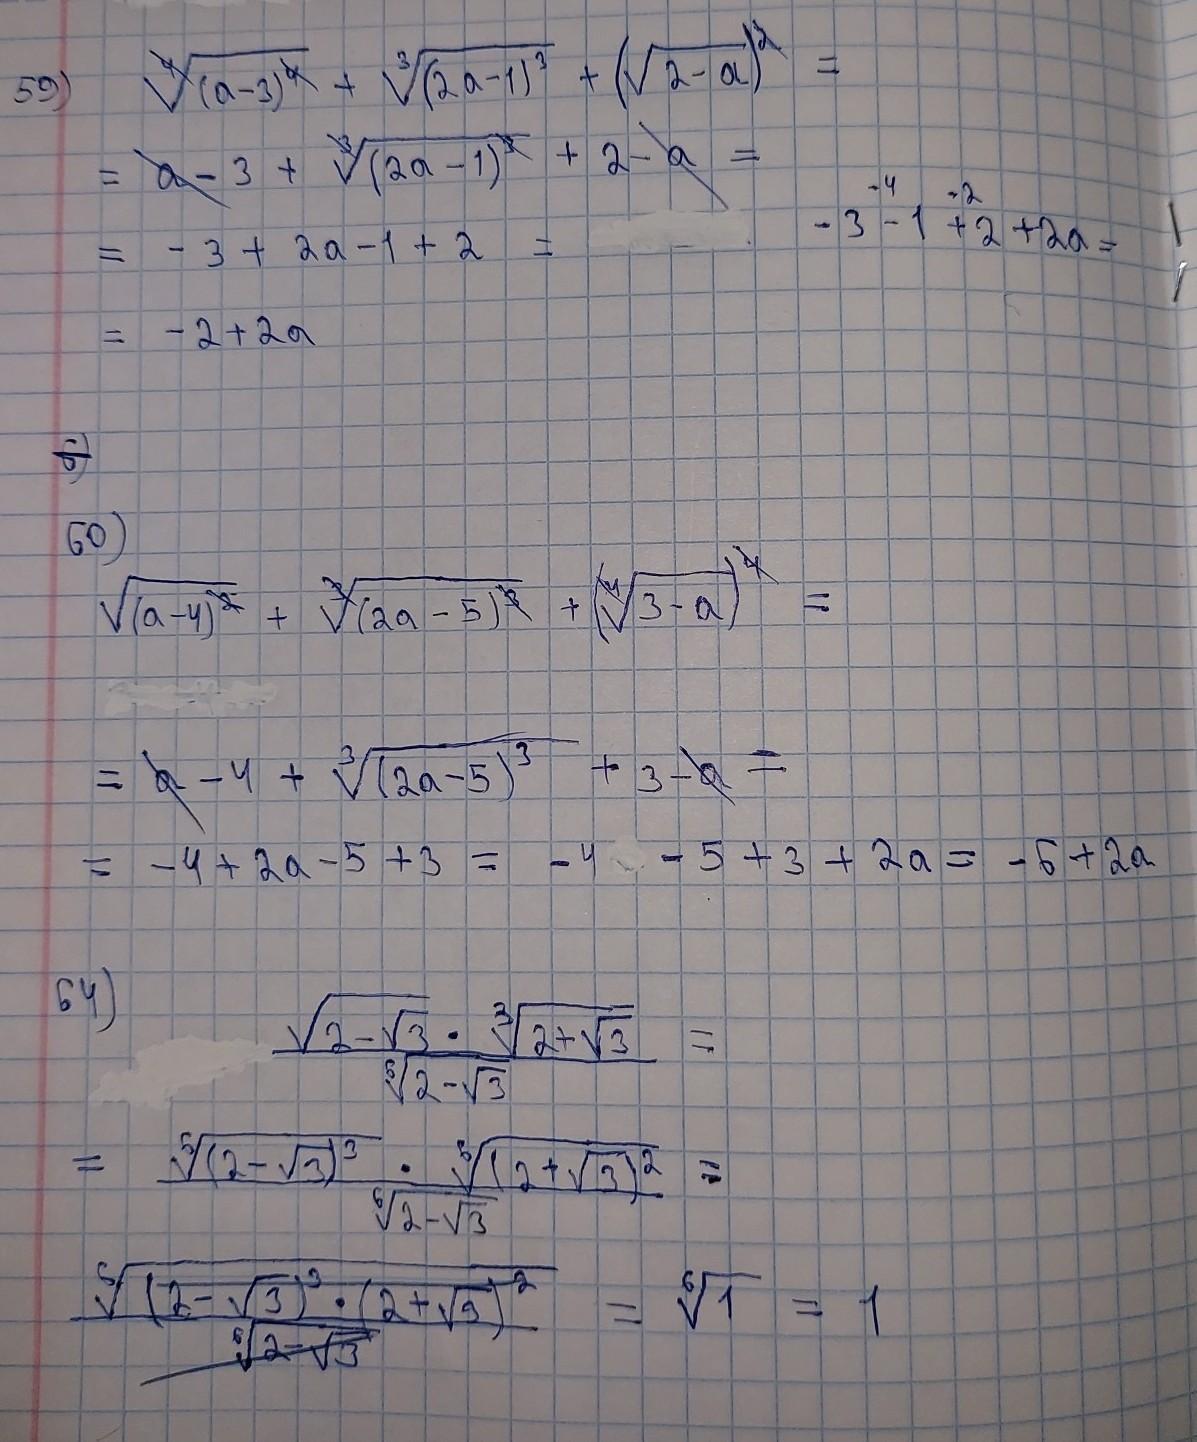 59) ⁴√(a-3)⁴ + ³√(2a-1)³ + (√2-a)² =
= a - 3 + ³√(2a-1)³ + 2 - a =
= - 3 + 2a - 1 + 2 =
-4 -2
- 3 - 1 + 2 + 2a =
= - 2 + 2a
6)
60)
√(a-4)² + ³√(2a-5)³ + (⁴√3-a)⁴ =
= a - 4 + ³√(2a-5)³ + 3 - a =
= - 4 + 2a - 5 + 3 = - 4 - 5 + 3 + 2a = - 6 + 2a
64)
√2-√3 · ³√2+√3 =
⁶√2-√3
= ⁶√(2-√3)³ · ⁶√(2+√3)² =
⁶√2-√3
⁶√(2-√3)³ · (2+√3)² = ⁶√1 = 1
⁶√2-√3